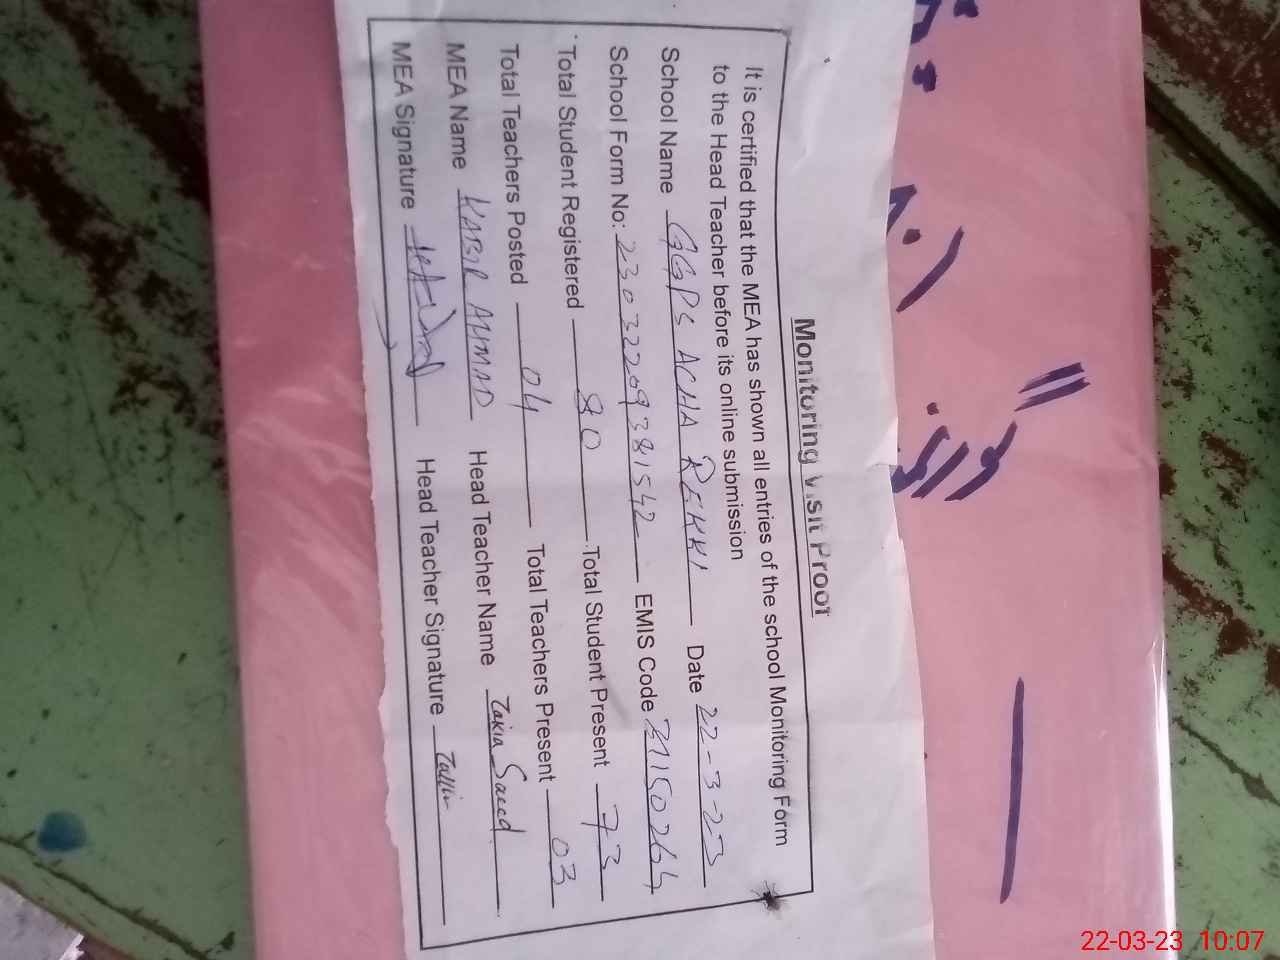 Monitoring Visit Proof
It is certified that the MEA has shown all entries of the school Monitoring Form
to the Head Teacher before its online submission
School Name GGPS ACHA REKKI Date 22-3-23
School Form No: 23032209381542 EMIS Code 31150264
Total Student Registered 80 Total Student Present 73
Total Teachers Posted 04 Total Teachers Present 03
MEA Name KABIR AHMAD Head Teacher Name Zakia Saeed
MEA Signature Head Teacher Signature
22-03-23 10:07